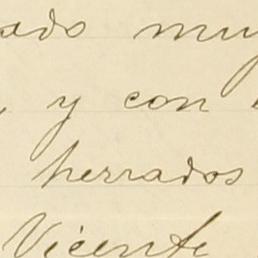 ado muy
, y con
herrados
Vicente